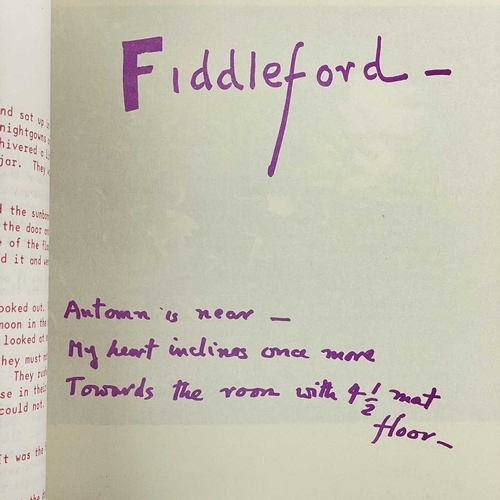 Fiddleford —
Autumn is near —
My heart inclines once more
Towards the room with 4 1/2 mat
floor —
nd sat up
nightgowns
hivered a
jar. They
the sunbon
the door
of the
d it and
ooked out.
moon in the
looked at
hey must
They
se in their
could not.
It was the